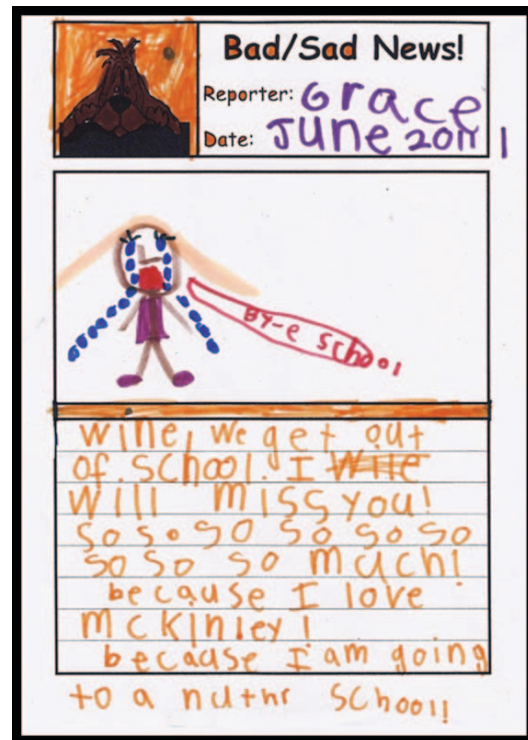 Bad/Sad News!
Reporter: Grace
Date: June 2011
By-e School
wine, we get out
of. School. I
will miss you!
so so so so so so
so so so much!
because I love
mckinley!
because I am going
to a nuthr School!